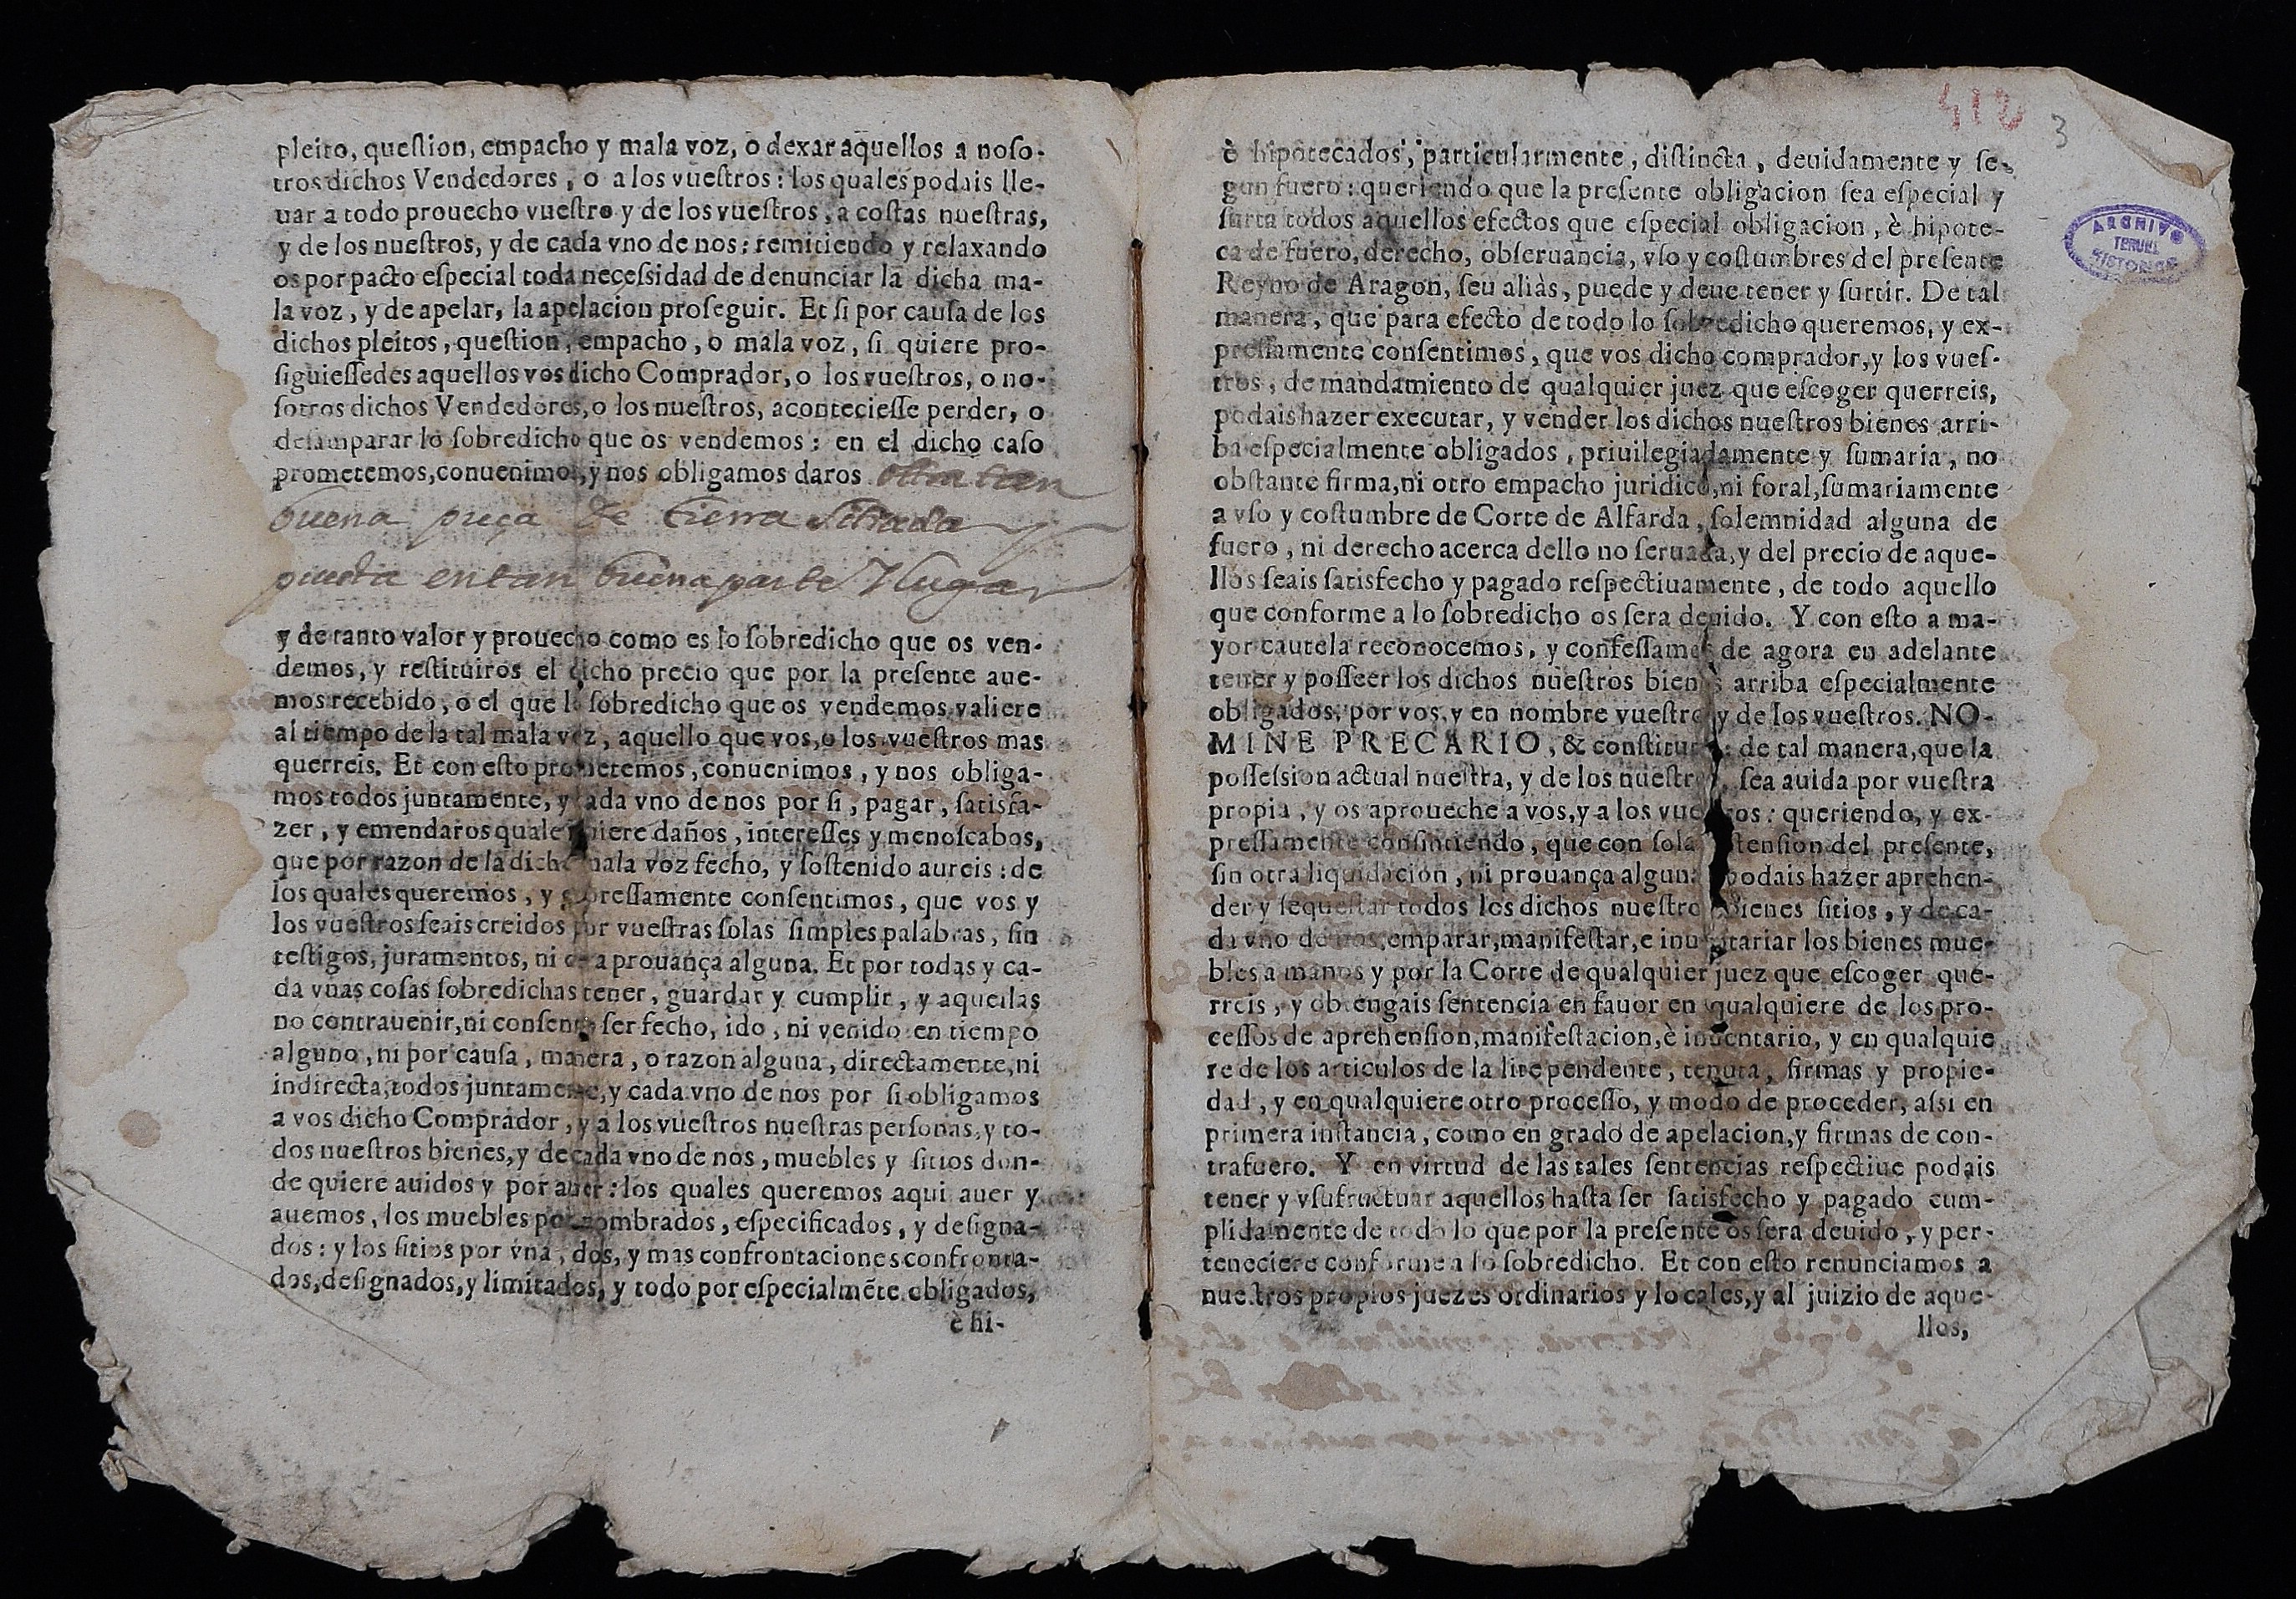 pleito, question, empacho y mala voz, o dexar aquellos a noso-
tros dichos Vendedores, o a los vuestros: los quales podais lle-
uar a todo prouecho vuestro y de los vuestros, a costas nuestras,
y de los nuestros, y de cada vno de nos: remitiendo y relaxando
os por pacto especial toda necessidad de denunciar la dicha ma-
la voz, y de apelar, la apelacion proseguir. Et si por causa de los
dichos pleitos, question, empacho, o mala voz, si quiere pro-
siguiessedes aquellos vos dicho Comprador, o los vuestros, o no-
sotros dichos Vendedores, o los nuestros, aconteciesse perder, o
desamparar lo sobredicho que os vendemos: en el dicho caso
prometemos, conuenimos, y nos obligamos daros otra tan
buena pieça de tierra sitiada
puesta en tan buena parte y lugar
y de tanto valor y prouecho como es lo sobredicho que os ven-
demos, y restituiros el dicho precio que por la presente aue-
mos recebido, o el que lo sobredicho que os vendemos valiere
al tiempo de la tal mala voz, aquello que vos, o los vuestros mas
querreis. Et con esto prometemos, conuenimos, y nos obliga-
mos todos juntamente, y cada vno de nos por si, pagar, satisfa-
zer, y emendaros qualesquiere daños, interesses y menoscabos,
que por razon de la dicha mala voz fecho, y sostenido aureis: de
los quales queremos, y expressamente consentimos, que vos y
los vuestros seais creidos por vuestras solas simples palabras, sin
testigos, juramentos, ni otra prouança alguna. Et por todas y ca-
da vnas cosas sobredichas tener, guardar y cumplir, y aquellas
no contrauenir, ni consentir ser fecho, ido, ni venido en tiempo
alguno, ni por causa, manera, o razon alguna, directamente, ni
indirecta, todos juntamente, y cada vno de nos por si obligamos
a vos dicho Comprador, y a los vuestros nuestras personas, y to-
dos nuestros bienes, y de cada vno de nos, muebles y sitios don-
de quiere auidos y por auer: los quales queremos aqui auer y
auemos, los muebles por nombrados, especificados, y designa-
dos: y los sitios por vna, dos, y mas confrontaciones confronta-
dos, designados, y limitados, y todo por especialmẽte obligados,
è hi-
412
3
è hipotecados, particularmente, distincta, deuidamente y se-
gun fuero: queriendo que la presente obligacion sea especial y
surta todos aquellos efectos que especial obligacion, è hipote-
ca de fuero, derecho, obseruancia, vso y costumbres del presente
Reyno de Aragon, seu aliàs, puede y deue tener y surtir. De tal
manera, que para efecto de todo lo sobredicho queremos, y ex-
pressamente consentimos, que vos dicho comprador, y los vues-
tros, de mandamiento de qualquier juez que escoger querreis,
podais hazer executar, y vender los dichos nuestros bienes arri-
ba especialmente obligados, priuilegiadamente y sumaria, no
obstante firma, ni otro empacho juridico, ni foral, sumariamente
a vso y costumbre de Corte de Alfarda, solemnidad alguna de
fuero, ni derecho acerca dello no seruada, y del precio de aque-
llos seais satisfecho y pagado respectiuamente, de todo aquello
que conforme a lo sobredicho os sera deuido. Y con esto a ma-
yor cautela reconocemos, y confessamos de agora en adelante
tener y posseer los dichos nuestros bienes arriba especialmente
obligados, por vos, y en nombre vuestro y de los vuestros. NO-
MINE PRECARIO, & constituto: de tal manera, que la
possession actual nuestra, y de los nuestros, sea auida por vuestra
propia, y os aproueche a vos, y a los vuestros: queriendo, y ex-
pressamente consintiendo, que con sola ostension del presente,
sin otra liquidacion, ni prouança alguna podais hazer aprehen-
der y sequestar todos los dichos nuestros bienes sitios, y de ca-
da vno de nos, emparar, manifestar, e inuentariar los bienes mue-
bles a manos y por la Corte de qualquier juez que escoger que-
rreis, y obtengais sentencia en fauor en qualquiere de los pro-
cessos de aprehension, manifestacion, è inuentario, y en qualquie
re de los articulos de la lite pendente, tenuta, firmas y propie-
dad, y en qualquiere otro processo, y modo de proceder, assi en
primera instancia, como en grado de apelacion, y firmas de con-
trafuero. Y en virtud de las tales sentencias respectiue podais
tener y vsufructuar aquellos hasta ser satisfecho y pagado cum-
plidamente de todo lo que por la presente os sera deuido, y per-
teneciere conforme a lo sobredicho. Et con esto renunciamos a
nuestros propios juezes ordinarios y locales, y al juizio de aque-
llos,
ARCHIVO
TERUEL
HISTORICO